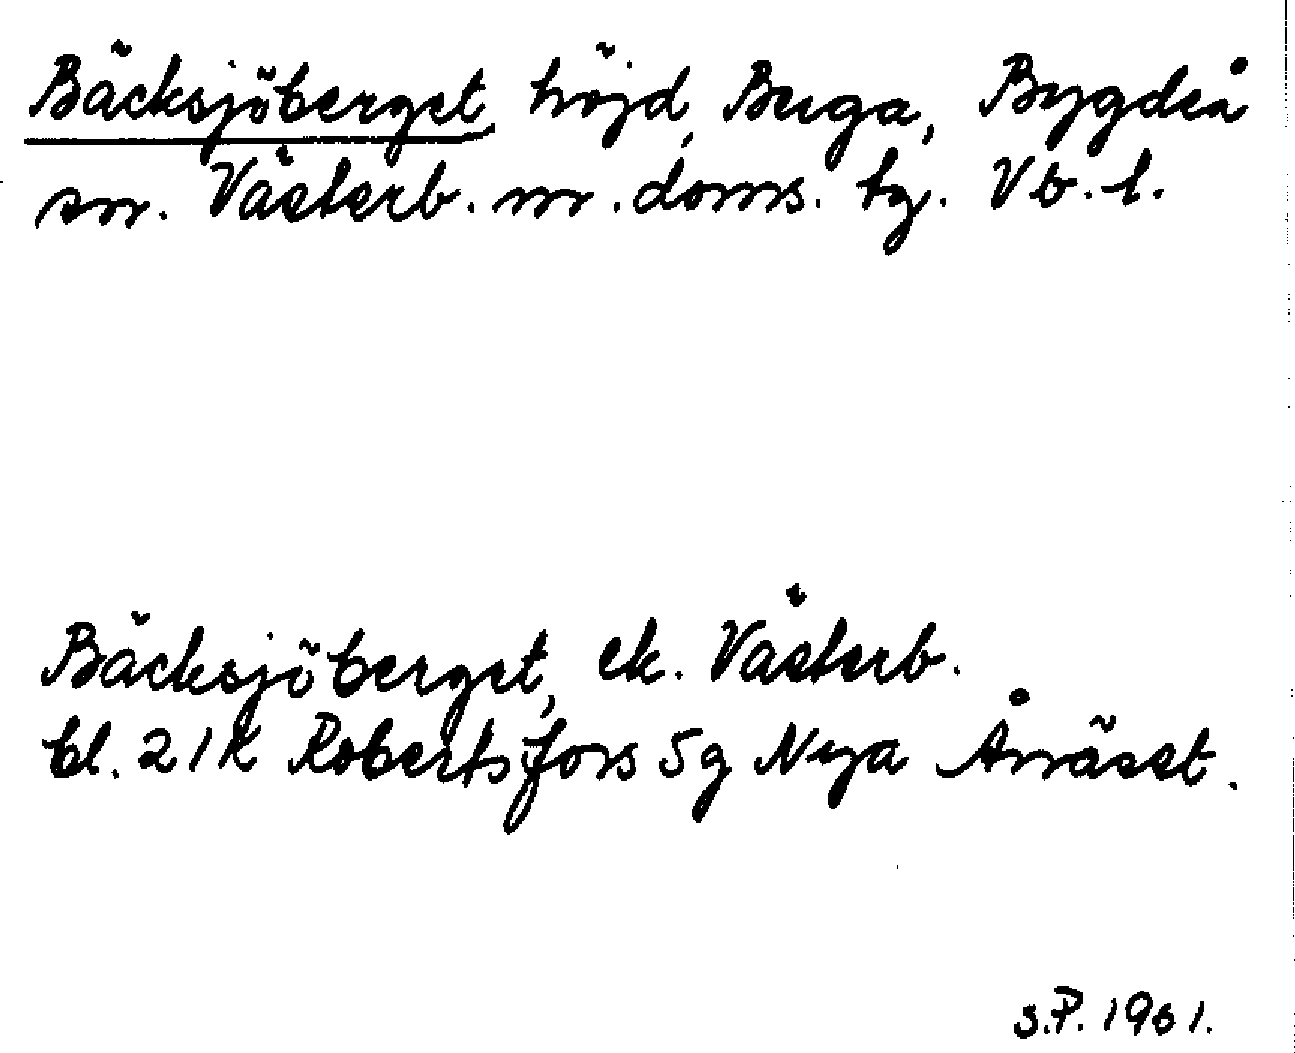 Bäcksjöberget, höjd, Berga, Bygdeå
sn. Västerb. n. doms. tg. Vb. l.
Bäcksjöberget, ek. Västerb.
bl. 21K Robertsfors 5g Nya Ånäset.
S.P. 1961.